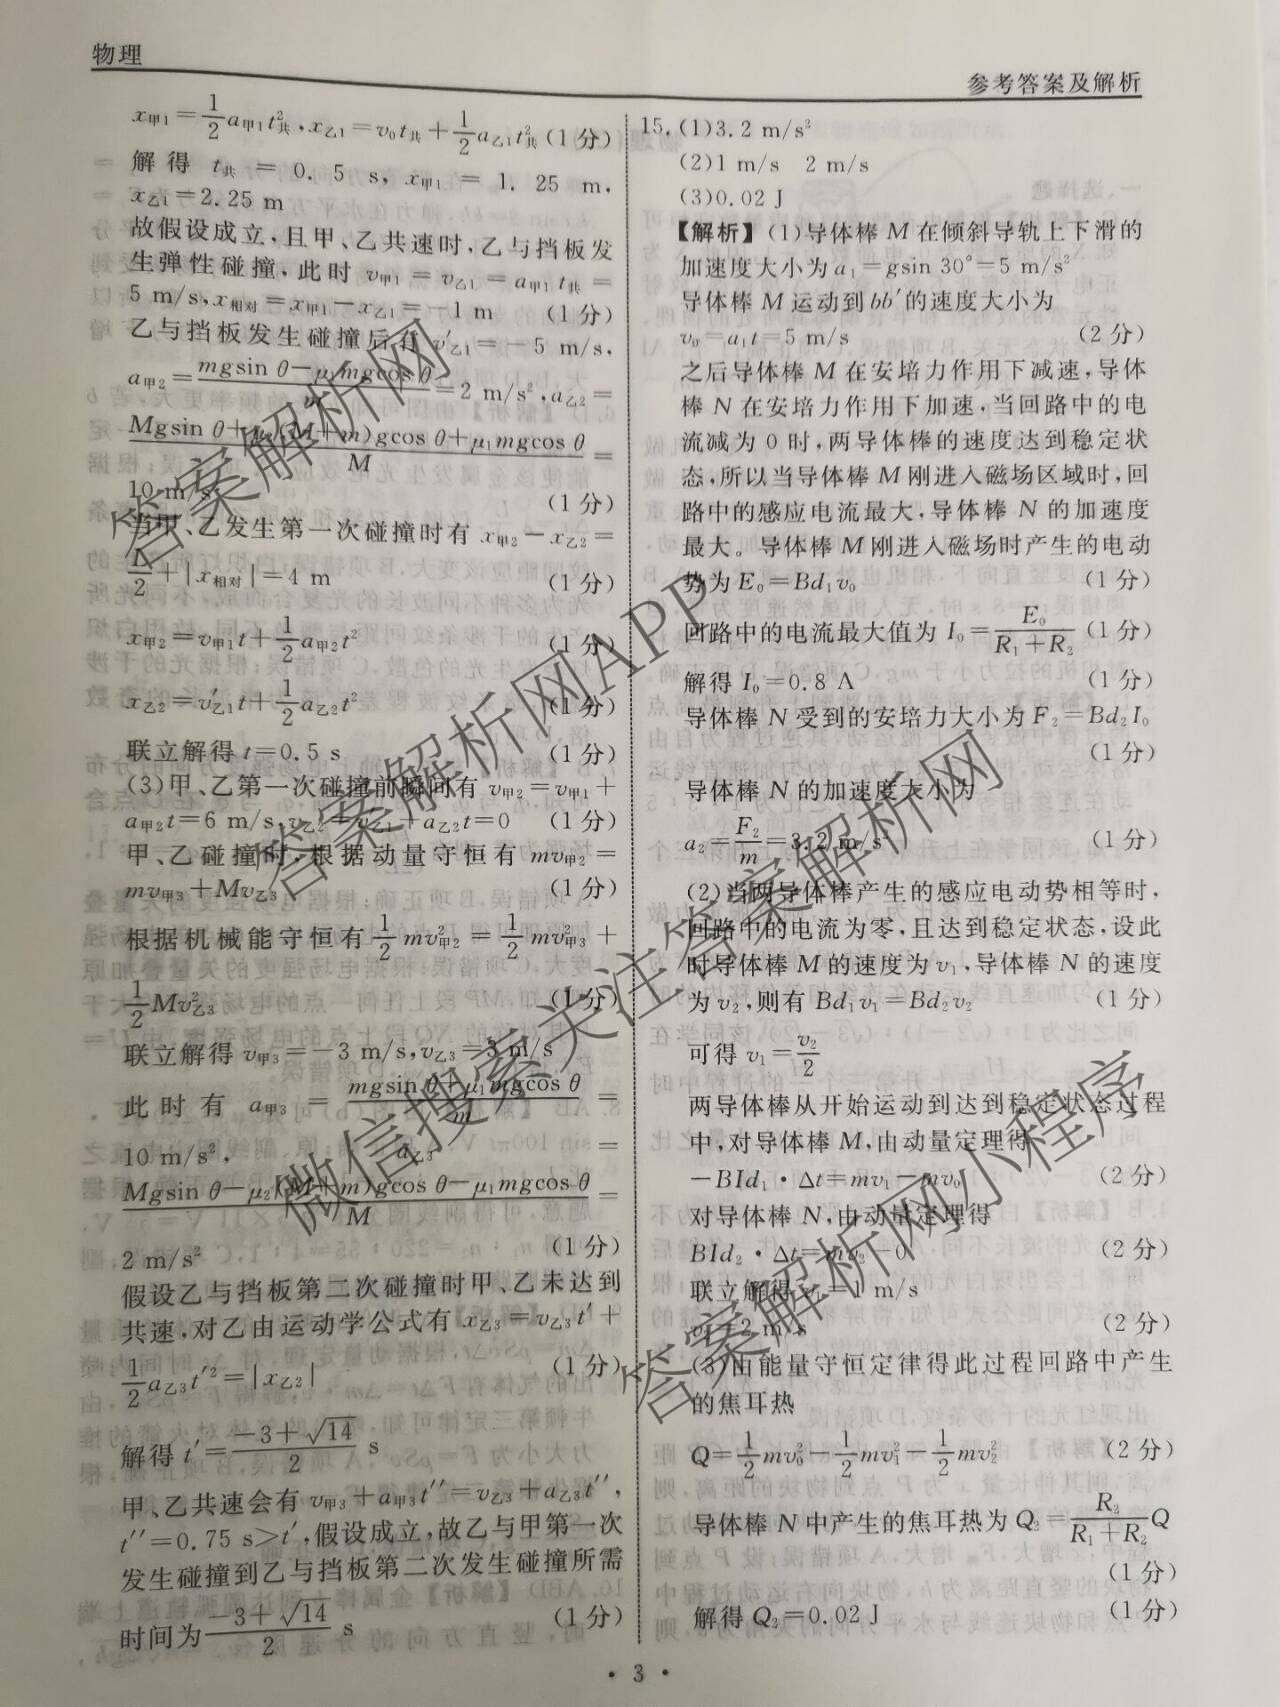 物理
参考答案及解析
x甲1=1/2 a甲1t共²,x乙1=v₀t共+1/2 a乙1t共²(1分)
解得 t共 = 0.5 s, x甲1 = 1.25 m,
x乙1=2.25 m
故假设成立,且甲、乙共速时,乙与挡板发
生弹性碰撞,此时 v甲1=v乙1=a甲1t共=
5 m/s,x相对=x甲1-x乙1=-1 m (1分)
乙与挡板发生碰撞后有 v′乙1=-5 m/s,
a甲2=(mgsin θ-μ₁mgcos θ)/m=2 m/s²,a乙2=
(Mgsin θ+μ₂(M+m)gcos θ+μ₁mgcos θ)/M=
10 m/s² (1分)
当甲、乙发生第一次碰撞时有 x甲2-x乙2=
L/2+|x相对|=4 m (1分)
x甲2=v甲1t+1/2 a甲2t² (1分)
x乙2=v′乙1t+1/2 a乙2t² (1分)
联立解得 t=0.5 s (1分)
(3)甲、乙第一次碰撞前瞬间有 v甲2=v甲1+
a甲2t=6 m/s,v乙2=v′乙1+a乙2t=0 (1分)
甲、乙碰撞时,根据动量守恒有 mv甲2=
mv甲3+Mv乙3 (1分)
根据机械能守恒有 1/2 mv甲2²=1/2 mv甲3²+
1/2 Mv乙3² (1分)
联立解得 v甲3=-3 m/s,v乙3=3 m/s
此时有 a甲3 = (mgsin θ+μ₁mgcos θ)/m =
10 m/s², a乙3 =
(Mgsin θ-μ₂(M+m)gcos θ-μ₁mgcos θ)/M=
2 m/s² (1分)
假设乙与挡板第二次碰撞时甲、乙未达到
共速,对乙由运动学公式有 x乙3=v乙3t′+
1/2 a乙3t′²=|x乙2| (1分)
解得 t′=(-3+√14)/2 s
甲、乙共速会有 v甲3+a甲3t″=v乙3+a乙3t″,
t″=0.75 s>t′,假设成立,故乙与甲第一次
发生碰撞到乙与挡板第二次发生碰撞所需
时间为(-3+√14)/2 s (1分)
15.(1)3.2 m/s²
(2)1 m/s 2 m/s
(3)0.02 J
【解析】(1)导体棒 M 在倾斜导轨上下滑的
加速度大小为 a₁=gsin 30°=5 m/s²
导体棒 M 运动到 bb′的速度大小为
v₀=a₁t=5 m/s (2分)
之后导体棒 M 在安培力作用下减速,导体
棒 N 在安培力作用下加速,当回路中的电
流减为 0 时,两导体棒的速度达到稳定状
态,所以当导体棒 M 刚进入磁场区域时,回
路中的感应电流最大,导体棒 N 的加速度
最大。导体棒 M 刚进入磁场时产生的电动
势为 E₀=Bd₁v₀ (1分)
回路中的电流最大值为 I₀=E₀/(R₁+R₂) (1分)
解得 I₀=0.8 A (1分)
导体棒 N 受到的安培力大小为 F₂=Bd₂I₀
(1分)
导体棒 N 的加速度大小为
a₂=F₂/m=3.2 m/s² (1分)
(2)当两导体棒产生的感应电动势相等时,
回路中的电流为零,且达到稳定状态,设此
时导体棒 M 的速度为 v₁,导体棒 N 的速度
为 v₂,则有 Bd₁v₁=Bd₂v₂ (1分)
可得 v₁=v₂/2
两导体棒从开始运动到达到稳定状态过程
中,对导体棒 M,由动量定理得
-BId₁·Δt=mv₁-mv₀ (2分)
对导体棒 N,由动量定理得
BId₂·Δt=mv₂-0 (2分)
联立解得 v₁=1 m/s
v₂=2 m/s (2分)
(3)由能量守恒定律得此过程回路中产生
的焦耳热
Q=1/2 mv₀²-1/2 mv₁²-1/2 mv₂² (2分)
导体棒 N 中产生的焦耳热为 Q₂=R₂/(R₁+R₂) Q
(1分)
解得 Q₂=0.02 J (1分)
· 3 ·
答案解析网
答案解析网APP
微信搜索关注答案解析网
答案解析网小程序